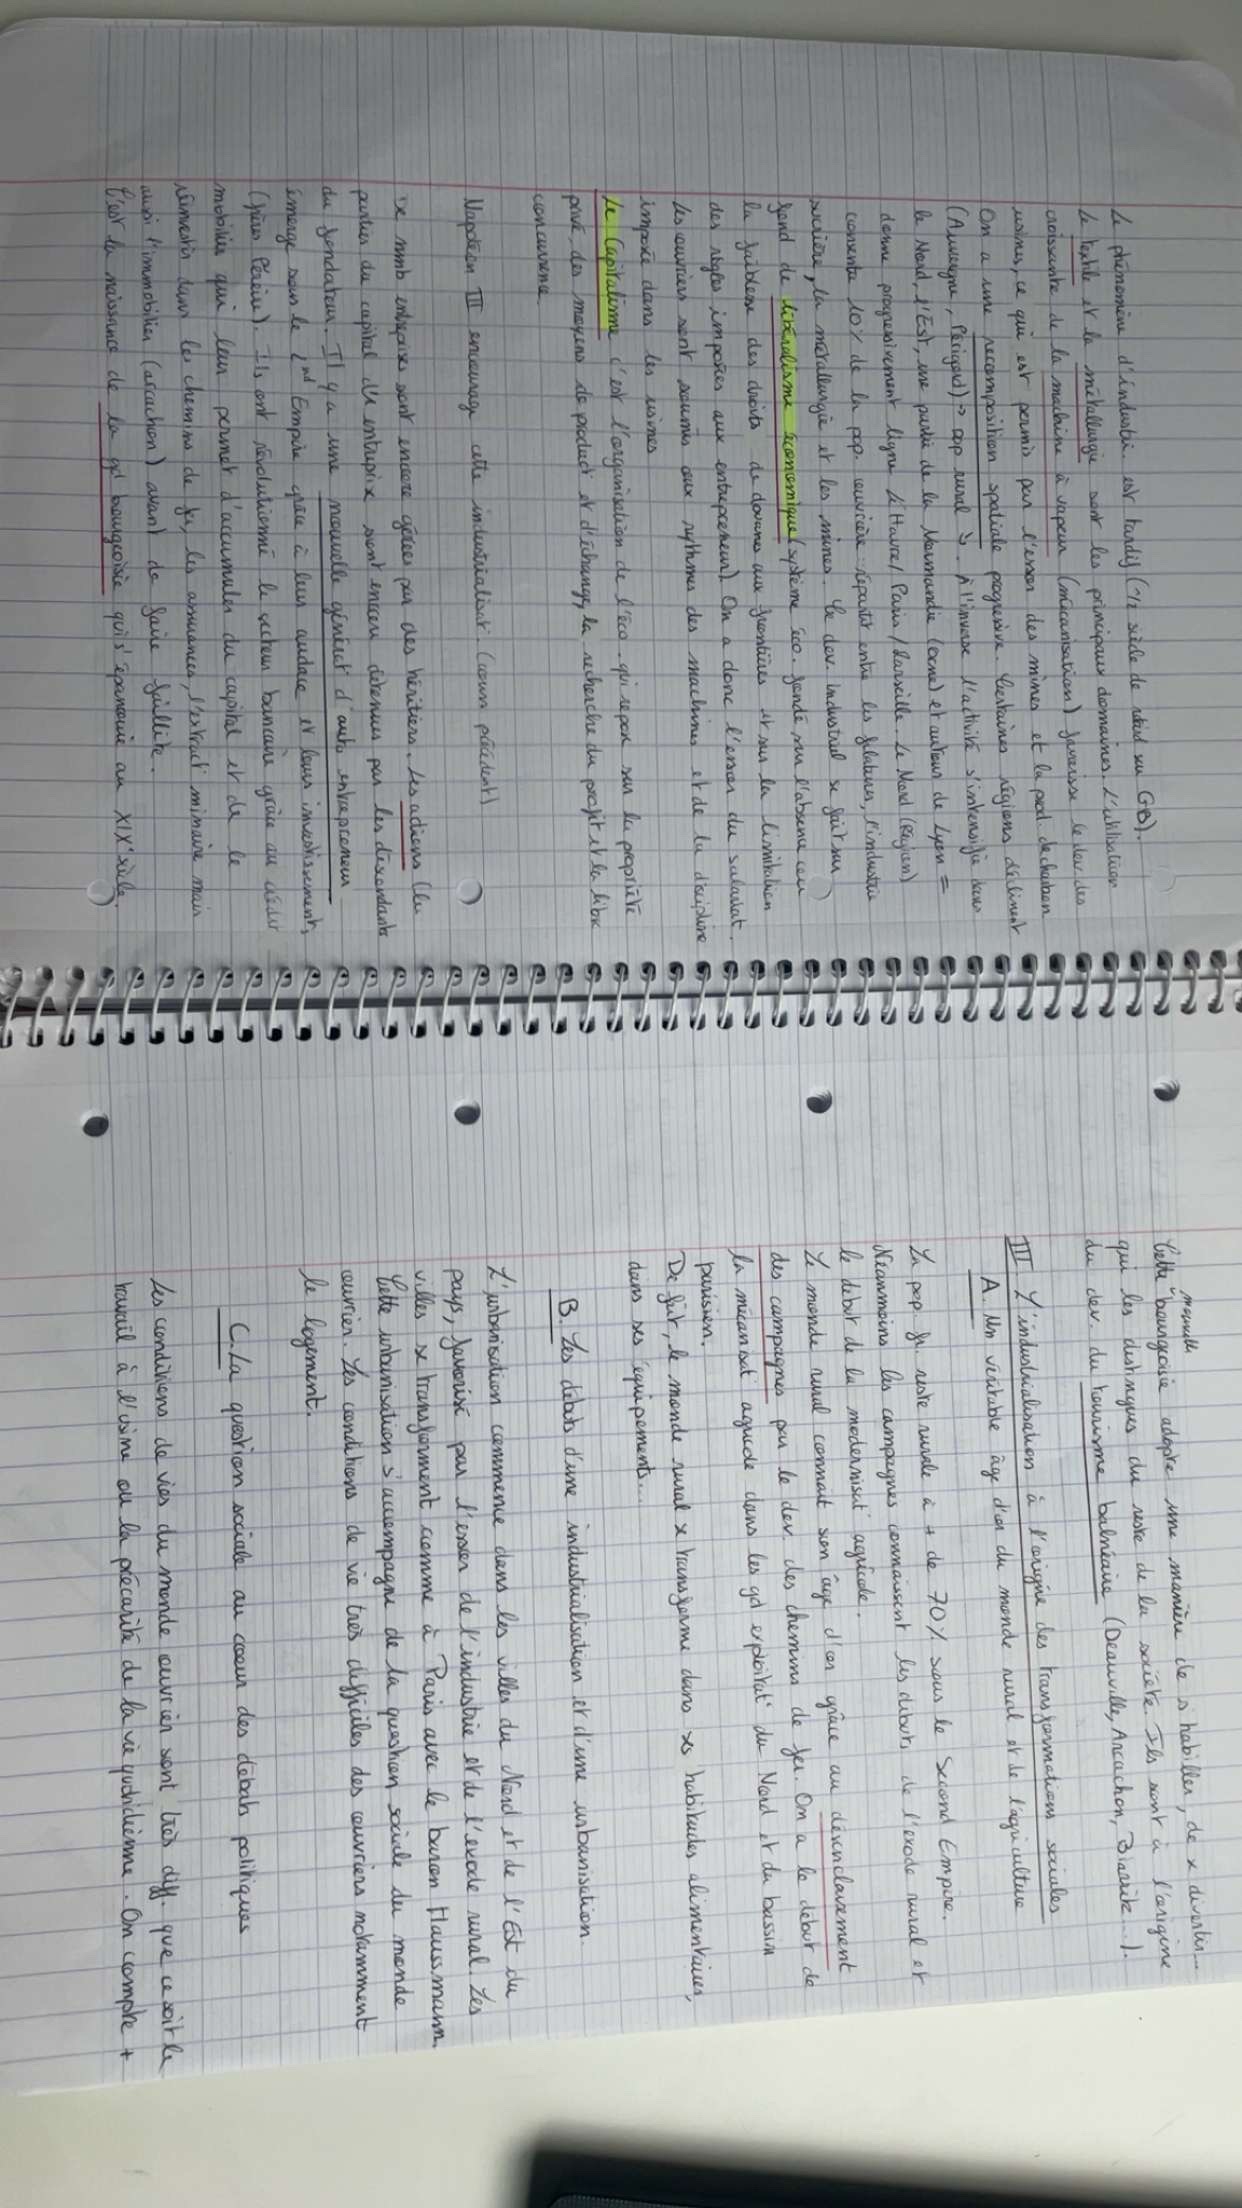 Le phénomène d'industri. est tardif (1/2 siècle de retard sur GB).
Le textile et la métallurgie sont les principaux domaines. L'utilisation
croissante de la machine à vapeur (mécanisation) favorise le dev. des
usines, ce qui est permis par l'essor des mines et la prod. de charbon
On a une recomposition spatiale progressive. Certaines régions déclinent
(Auvergne, Périgord) → pop rural ↘. A l'inverse l'activité s'intensifie dans
le Nord, l'Est, une partie de la Normandie (orne) et autour de Lyon =
donne progressivement ligne Le Havre / Paris / Marseille. Le Nord (Région)
concentre 10% de la pop. ouvrière répartit entre les filatures, l'industrie
sucrière, la métallurgie et les mines. Le dev. industriel se fait sur
fond de libéralisme économique (système éco. fondé sur l'absence ou
la faiblesse des droits de douanes aux frontières et sur la limitation
des règles imposées aux entrepreneur). On a donc l'essor du salariat.
Les ouvriers sont soumis aux rythmes des machines et de la discipline
imposée dans les usines
Le Capitalisme c'est l'organisation de l'éco. qui repose sur la propriété
privé, des moyens de product° et d'échange, la recherche du profit et la libre
concurrence.
Napoléon III encourage cette industrialisat°. (cours précédent)
De nmb entreprises sont encore gérées par des héritiers. Les actions (les
parties du capital de entreprise sont encore détenues par les descendants
du fondateur. Il y a une nouvelle générat° d'auto entrepreneur
émerge sous le 2nd Empire grâce à leur audace et leurs investissements
(frères Péreire). Ils ont révolutionné le secteur bancaire grâce au crédit
mobilier qui leur permet d'accumuler du capital et de le
réinvestir dans les chemins de fer, les assurances, l'extract° minière mais
aussi l'immobilier (arcachon) avant de faire faillite.
C'est la naissance de la gd bourgeoisie qui s'épanouie au XIXe siècle.
Cette nouvelle bourgeoisie adopte une manière de s'habiller, de se divertir...
qui les distingues du reste de la société. Ils sont à l'origine
du dev. du tourisme balnéaire (Deauville, Arcachon, Biarritz...).
III. L'industrialisation à l'origine des transformations sociales
A. Un véritable âge d'or du monde rural et de l'agriculture
La pop. fr. reste rurale à + de 70% sous le Second Empire.
Néanmoins les campagnes connaissent les débuts de l'exode rural et
le début de la modernisat° agricole.
Le monde rural connait son âge d'or grâce au désenclavement
des campagnes par le dev. des chemins de fer. On a le début de
la mécanisat° agricole dans les gd exploitat° du Nord et du bassin
parisien.
De fait, le monde rural se transforme dans ses habitudes alimentaires,
dans ses équipements...
B. Les débuts d'une industrialisation et d'une urbanisation
L'urbanisation commence dans les villes du Nord et de l'Est du
pays, favorisé par l'essor de l'industrie et de l'exode rural. Les
villes se transforment comme à Paris avec le baron Haussmann.
Cette urbanisation s'accompagne de la question sociale du monde
ouvrier. Les conditions de vie très difficiles des ouvriers notamment
le logement.
C. La question sociale au coeur des débats politiques
Les conditions de vies du monde ouvrier sont très diff. que ce soit le
travail à l'usine ou la précarité de la vie quotidienne. On compte +